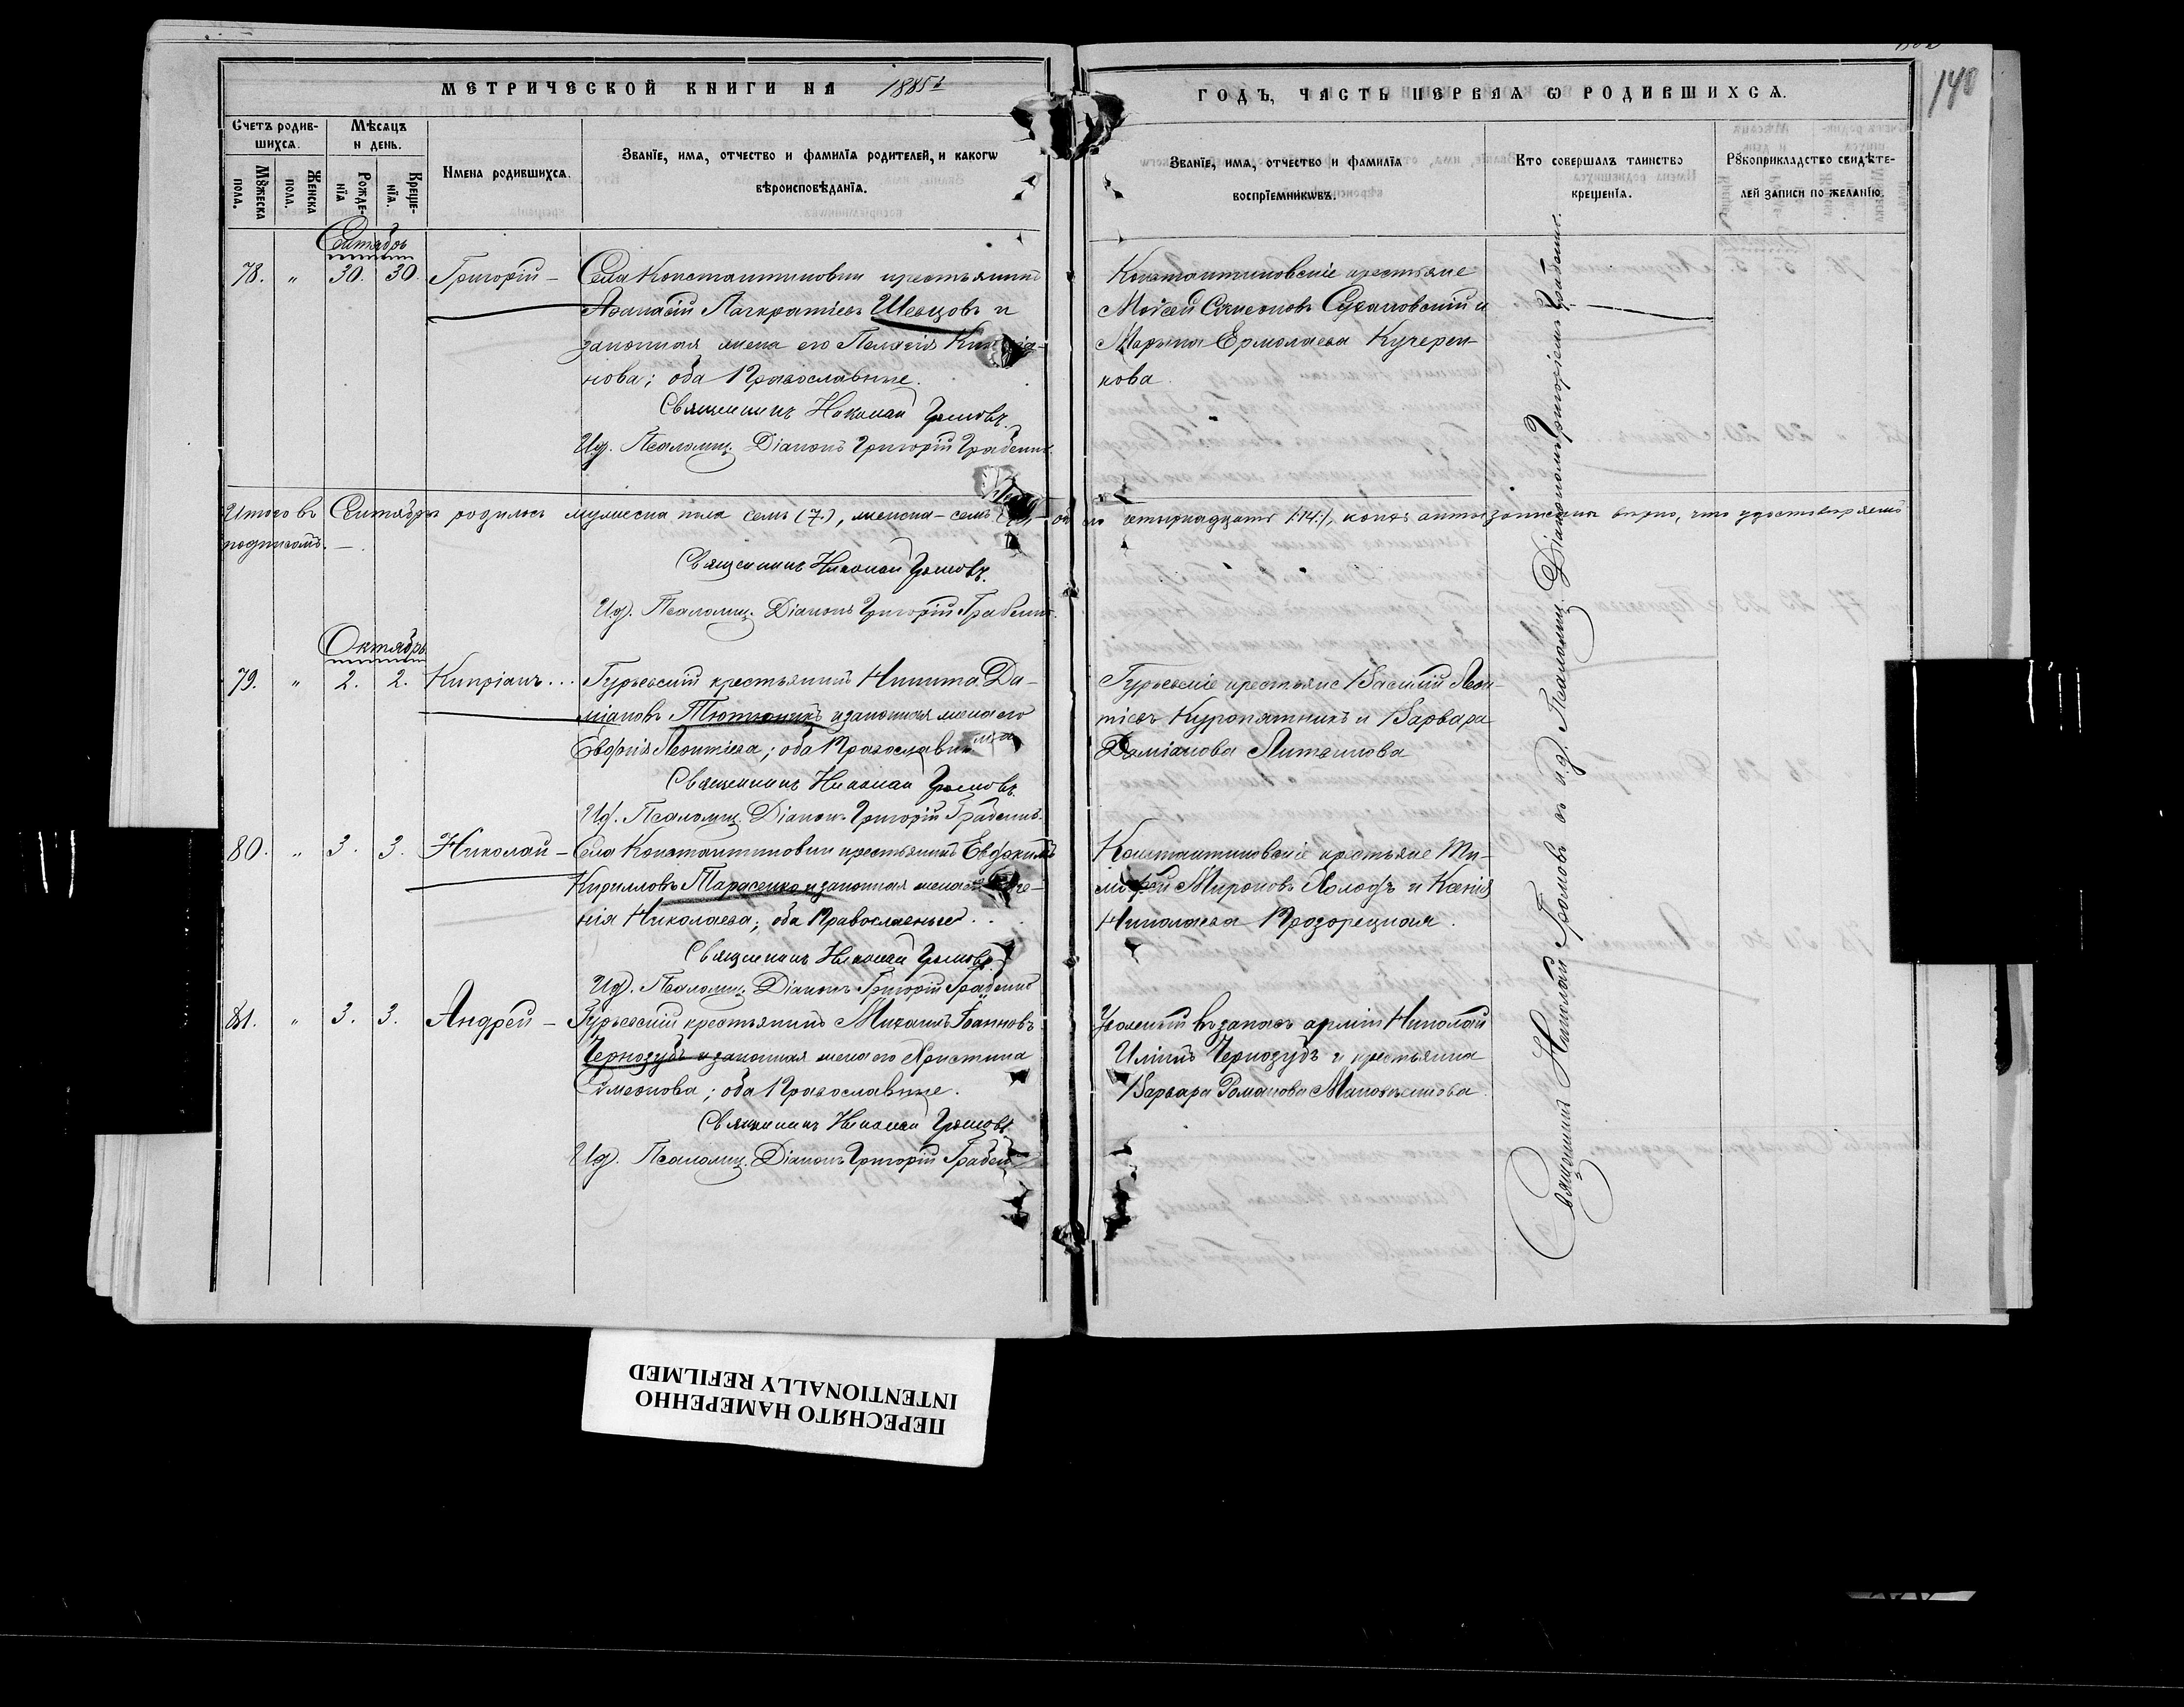 МЕТРИЧЕСКОЙ КНИГИ НА 1885й ГОДЪ, ЧАСТЬ ПЕРВАЯ Ѡ РОДИВШИХСЯ.
140
Счетъ родив-
шихсѧ.
Мѣсяцъ
и день.
Мꙋжеска
пола.
Женска
пола.
Рожде-
нїѧ
Креще-
нїѧ.
Имена родившихсѧ.
Званїе, имѧ, отчество и фамилїѧ родителей, и какогѡ
вѣроисповѣданїѧ.
Званїе, имѧ, отчество и фамилїѧ
воспрїемникѡвъ.
Кто совершалъ таинство
крещенїѧ.
Рꙋкоприкладство свидѣте-
лей записи по желанїю.
Сентябрь
78. " 30. 30. Григорій –
Села Константиновки крестьянинъ
Аѳанасій Панкратіевъ Шевцовъ и
законная жена его Пелагія
нова; оба Православные.
Священникъ Николай Громовъ.
И.д. Псаломщ. Діаконъ Григорій
Константиновскіе крестьяне
Моѵсей Симеоновъ Сухановскій и
Марѳа Ермолаева Кучерен-
кова.
Итого въ Сентябрѣ родилось мужеска пола семь (7.), женска – семь четырнадцать (14.), коихъ акты записаны вѣрно, что удостовѣряемъ
подписомъ. —
Священникъ Николай Громовъ.
И.д. Псаломщ. Діаконъ Григорій
Октябрь
79. " 2. 2. Кипріанъ...
Гурьевскій крестьянинъ Никита Да-
міановъ Тютюникъ и законная жена его
Евфимія Леонтіева; оба Православныя
Священникъ Николай Громовъ.
И.д. Псаломщ. Діаконъ Григорій
Гурьевскіе крестьяне Василій Леон-
тіевъ Куропятникъ и Варвара
Даміанова Литвинова
80. " 3. 3. Николай –
Села Константиновки крестьянинъ Евфимъ
Кирилловъ Тарасенко и законная жена его
нія Николаева; оба Православные..
Священникъ Николай Громовъ.
И.д. Псаломщ. Діаконъ Григорій
Константиновскіе крестьяне Ти-
мофей Мироновъ Холодъ и Ксенія
Николаева Прозорецкая.
81. " 3. 3. Андрей –
Гурьевскій крестьянинъ Михаилъ Іоанновъ
Чернозубъ и законная жена его Христина
Симеонова; оба Православные.
Священникъ Николай Громовъ.
И.д. Псаломщ. Діаконъ Григорій
Уволенный въ запасъ арміи Николай
Иліинъ Чернозубъ и крестьянка
Варвара Романова
Священникъ Николай Громовъ съ и.д. Псаломщ. Діакономъ Григоріемъ
ПЕРЕСНЯТО НАМЕРЕННО
INTENTIONALLY REFILMED